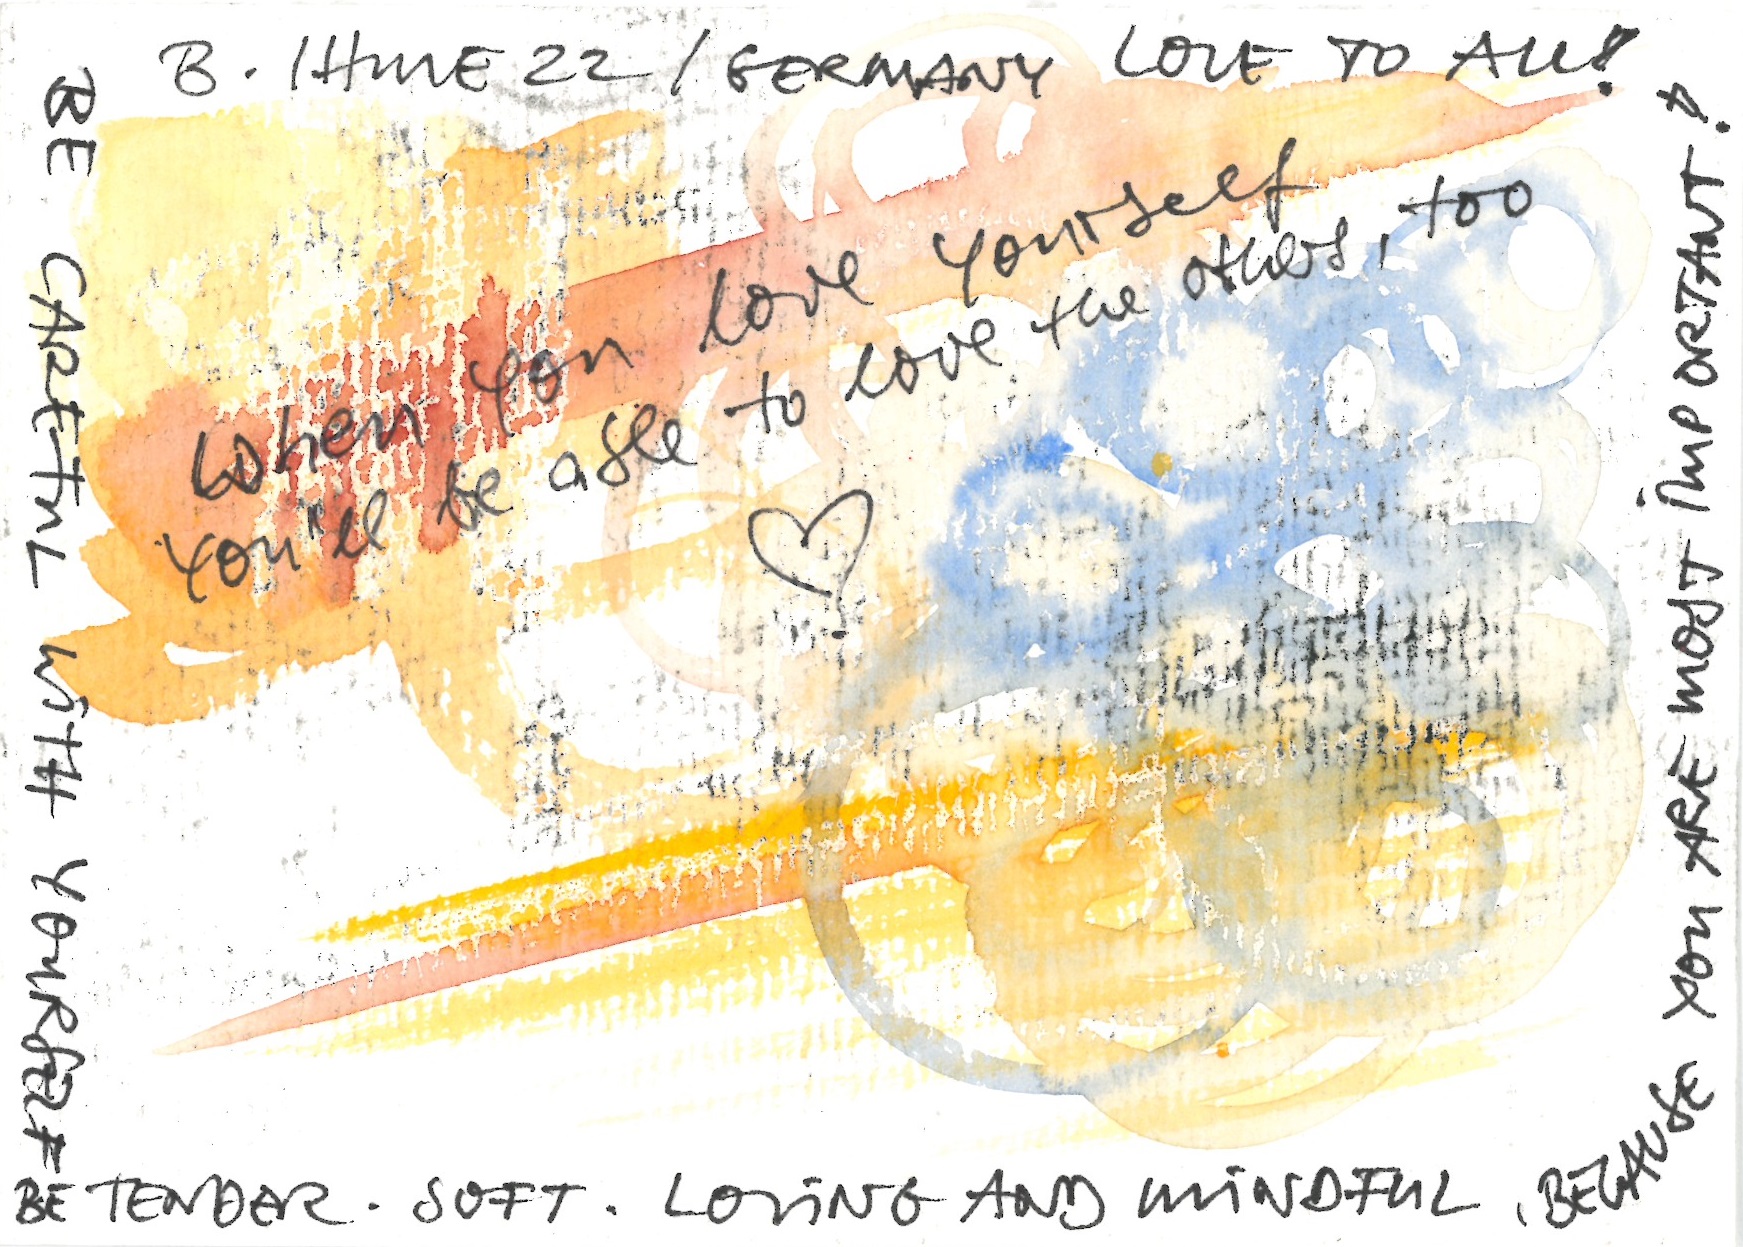 B. 22 / GERMANY LOVE TO ALL!
When you love yourself
You'll be able to love the others, too
BE CAREFUL WITH YOURSELF
BE TENDER. SOFT. LOVING AND MINDFUL, BECAUSE
YOU ARE MOST IMPORTANT!